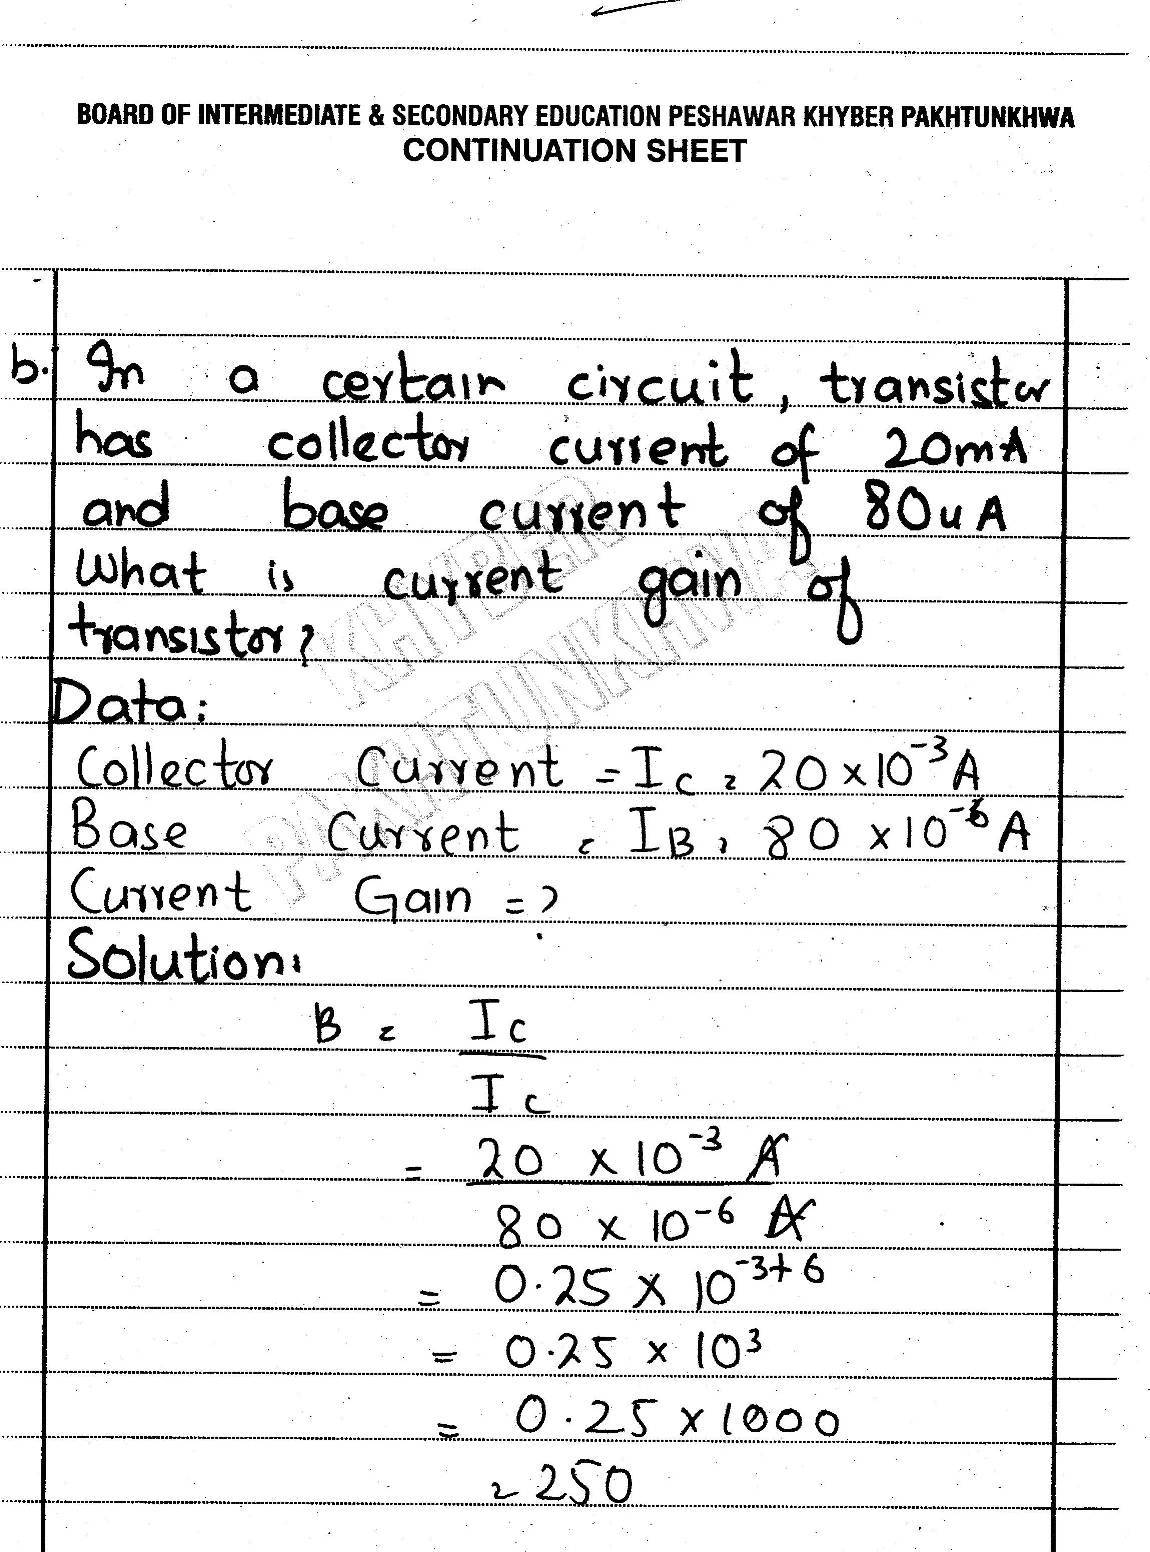 BOARD OF INTERMEDIATE & SECONDARY EDUCATION PESHAWAR KHYBER PAKHTUNKHWA
CONTINUATION SHEET
b. In a certain circuit, transistor
has collector current of 20mA
and base current of 80uA
What is current gain of
transistor?
KHYBER
PAKHTUNKHWA
Data:
Collector Current = IC = 20 x 10^-3 A
Base Current = IB = 80 x 10^-6 A
Current Gain = ?
Solution:
B = IC
IC
= 20 x 10^-3 A
80 x 10^-6 A
= 0.25 x 10^-3+6
= 0.25 x 10^3
= 0.25 x 1000
= 250